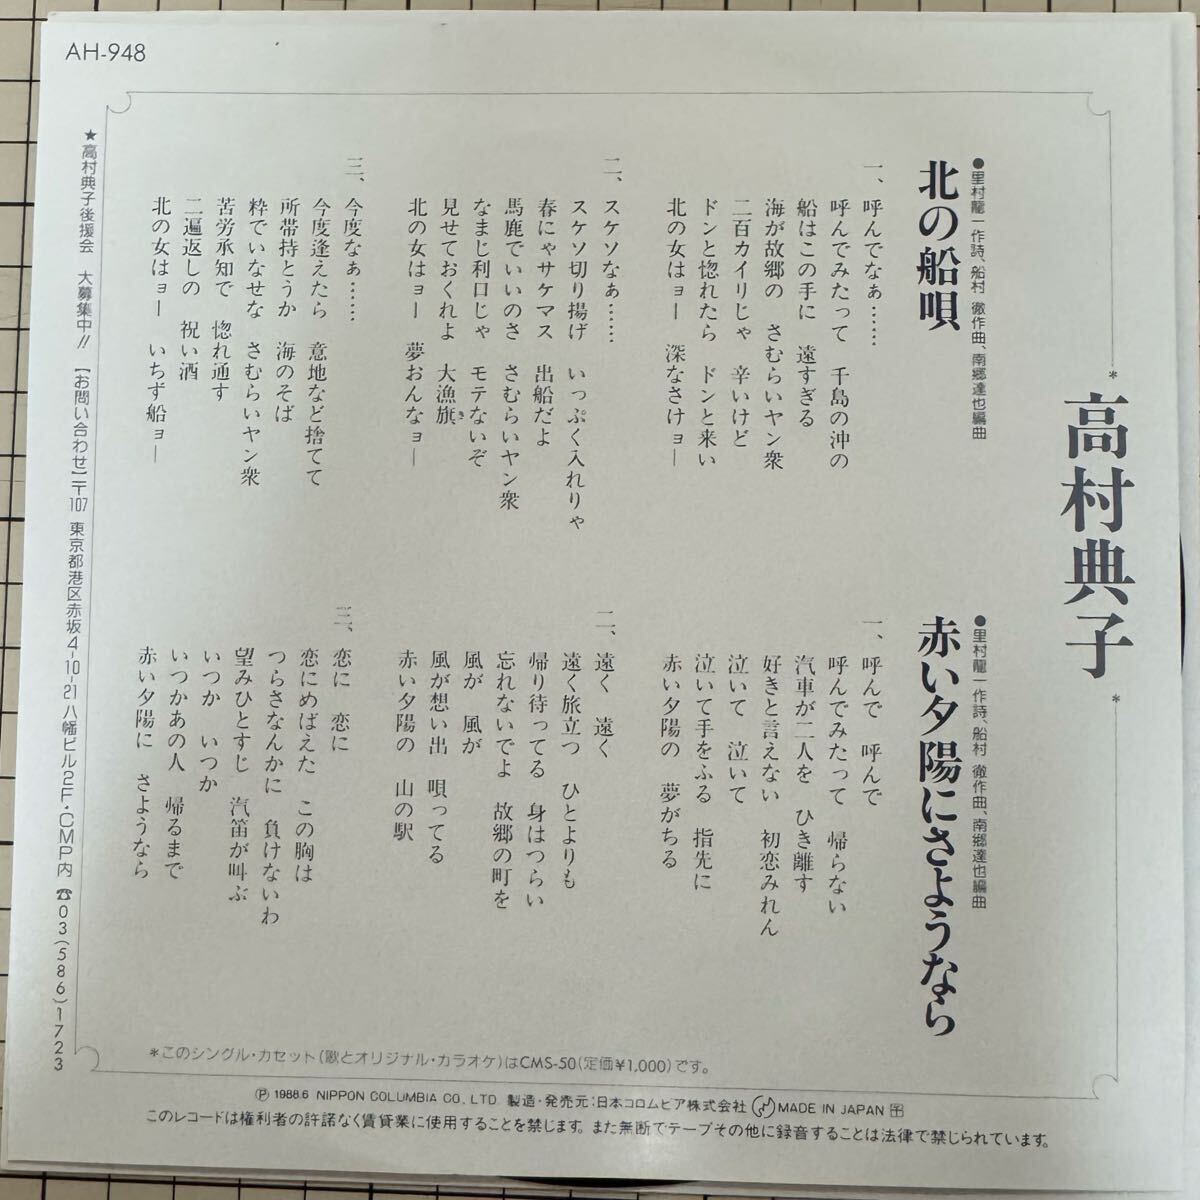 AH-948
高村典子
●里村龍一作詩、船村 徹作曲、南郷達也編曲
北の船唄
一、呼んでなぁ……
呼んでみたって 千島の沖の
船はこの手に 遠すぎる
海が故郷の さむらいヤン衆
二百カイリじゃ 辛いけど
ドンと惚れたら ドンと来い
北の女はョー 深なさけョー
二、スケソなぁ……
スケソ切り揚げ いっぷく入れりゃ
春にゃサケマス 出船だよ
馬鹿でいいのさ さむらいヤン衆
なまじ利口じゃ モテないぞ
見せておくれよ 大漁旗
き
北の女はョー 夢おんなョー
三、今度なぁ……
今度逢えたら 意地など捨てて
所帯持とうか 海のそば
粋でいなせな さむらいヤン衆
苦労承知で 惚れ通す
二遍返しの 祝い酒
北の女はョー いちず船ョー
●里村龍一作詩、船村 徹作曲、南郷達也編曲
赤い夕陽にさようなら
一、呼んで 呼んで
呼んでみたって 帰らない
汽車が二人を ひき離す
好きと言えない 初恋みれん
泣いて 泣いて
泣いて手をふる 指先に
赤い夕陽の 夢がちる
二、遠く 遠く
遠く旅立つ ひとよりも
帰り待ってる 身はつらい
忘れないでよ 故郷の町を
風が 風が
風が想い出 唄ってる
赤い夕陽の 山の駅
三、恋に 恋に
恋にめばえた この胸は
つらさなんかに 負けないわ
望みひとすじ 汽笛が叫ぶ
いつか いつか
いつかあの人 帰るまで
赤い夕陽に さようなら
★高村典子後援会 大募集中!!【お問い合わせ】〒107 東京都港区赤坂4-10-21 八幡ビル2F・CMP内 ☎03(586)1723
*このシングル・カセット(歌とオリジナル・カラオケ)はCMS-50(定価¥1,000)です。
Ⓟ1988.6 NIPPON COLUMBIA CO., LTD. 製造・発売元:日本コロムビア株式会社 MADE IN JAPAN
このレコードは権利者の許諾なく賃貸業に使用することを禁じます。また無断でテープその他に録音することは法律で禁じられています。